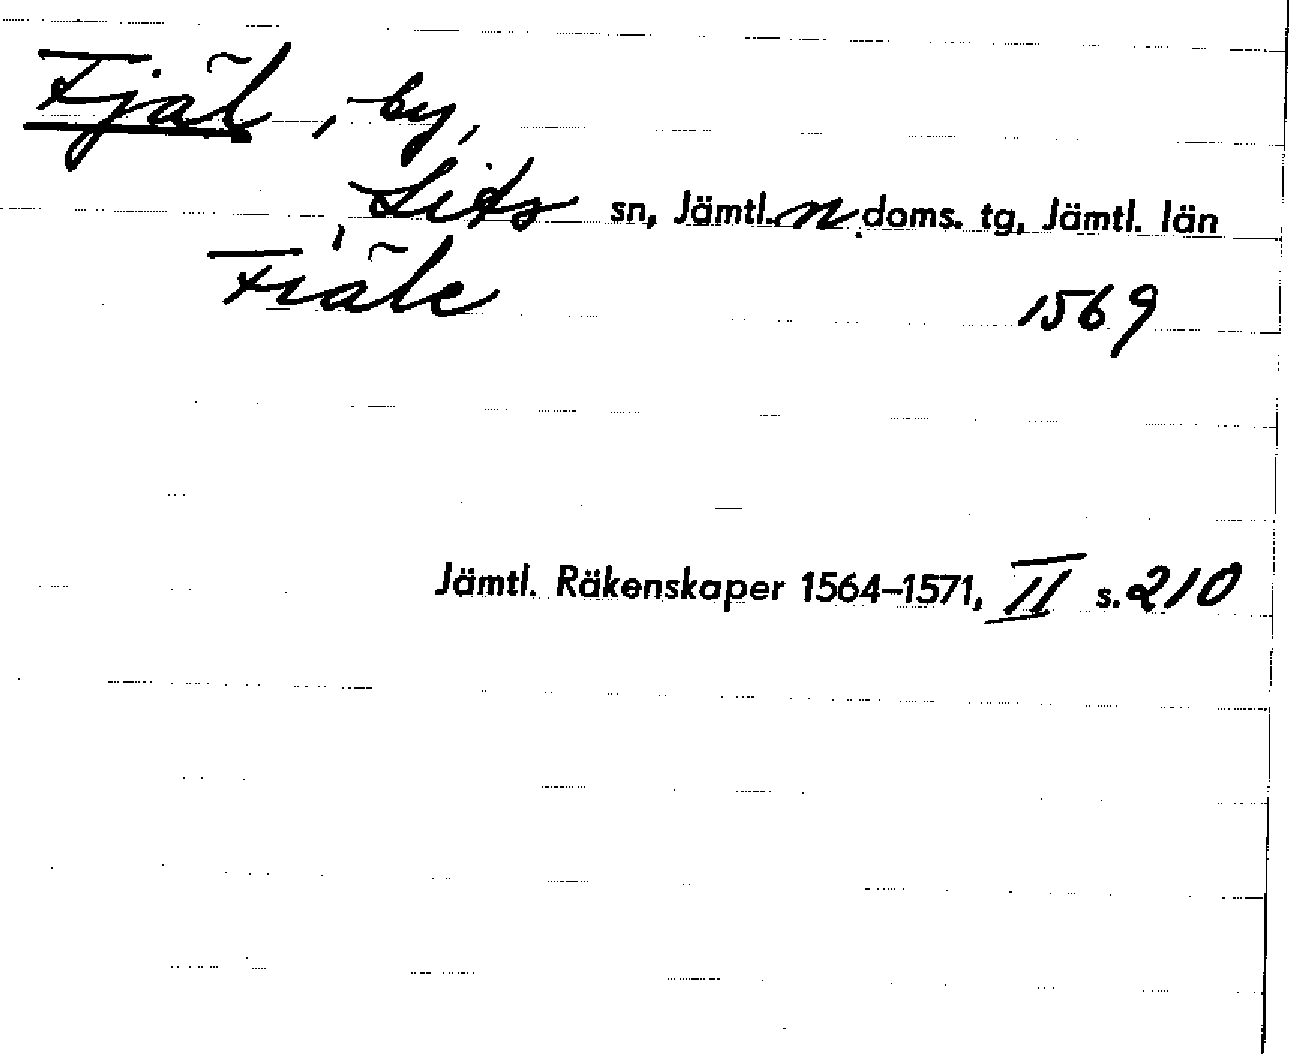 Fjäl, by,
Lits sn, Jämtl. n doms. tg, Jämtl. län
Fiäle 1569
Jämtl. Räkenskaper 1564–1571, II s. 210